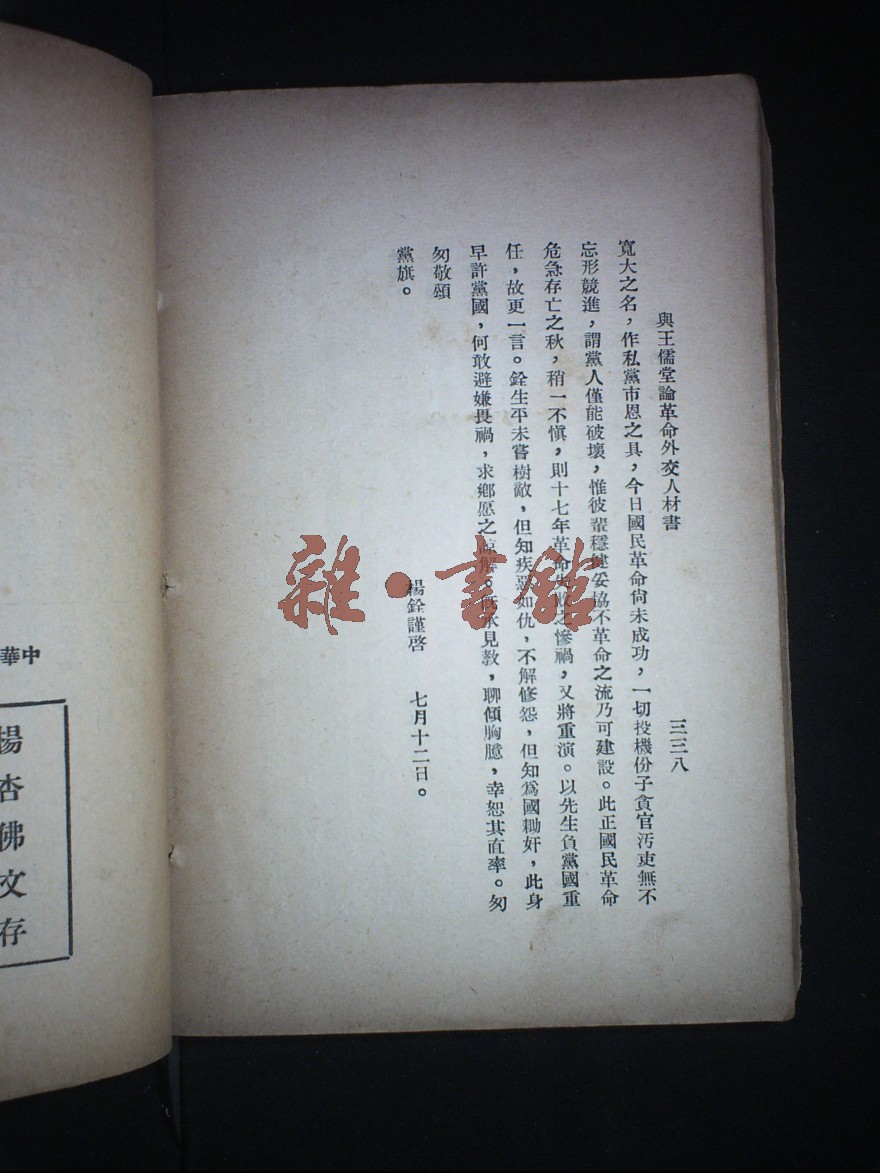 與王儒堂論革命外交人材書
三三八
寬大之名，作私黨市恩之具，今日國民革命尚未成功，一切投機份子貪官汚吏無不
忘形競進，謂黨人僅能破壞，惟彼輩穩健妥協不革命之流乃可建設。此正國民革命
危急存亡之秋，稍一不愼，則十七年革命失敗之慘禍，又將重演。以先生負黨國重
任，故更一言。銓生平未嘗樹敵，但知疾惡如仇，不解修怨，但知爲國鋤奸，此身
早許黨國，何敢避嫌畏禍，求鄉愿之諒解。旣承見教，聊傾胸臆，幸恕其直率。匆
匆敬頌
黨旗。
楊銓謹啓　七月十二日。
雜·書館
中華
楊杏佛文存